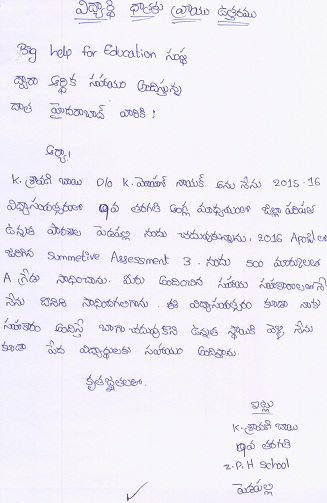 విద్యార్థి దాతకు వ్రాయు ఉత్తరము
Big help for Education సంస్థ
ద్వారా ఆర్థిక సహాయం అందిస్తున్న
దాత హైదరాబాద్ వారికి!
ఆర్యా!
K. శ్రావణి బాయి D/o K. మోహన్ నాయక్ అను నేను 2015-16
విద్యాసంవత్సరంలో 9వ తరగతి ఆంగ్ల మాధ్యమంలో జిల్లా పరిషత్
ఉన్నత పాఠశాల పెడపల్లి నందు చదువుకున్నాను. 2016 April లో
జరిగిన Summetive Assessment 3. నందు 500 మార్కులకు
A గ్రేడు సాధించాను. మీరు అందించిన సహాయ సహకారాలతోనే
నేను దీనిని సాధించగలిగాను. ఈ విద్యాసంవత్సరం కూడా నాకు
సహకారం అందిస్తే బాగా చదువుకుని ఉన్నత స్థాయికి వెళ్లి నేను
కూడా పేద విద్యార్థులకు సహాయం అందిస్తాను.
కృతజ్ఞతలతో.
ఇట్లు
K. శ్రావణి బాయి
వ తరగతి
Z.P.H School
పెడపల్లి